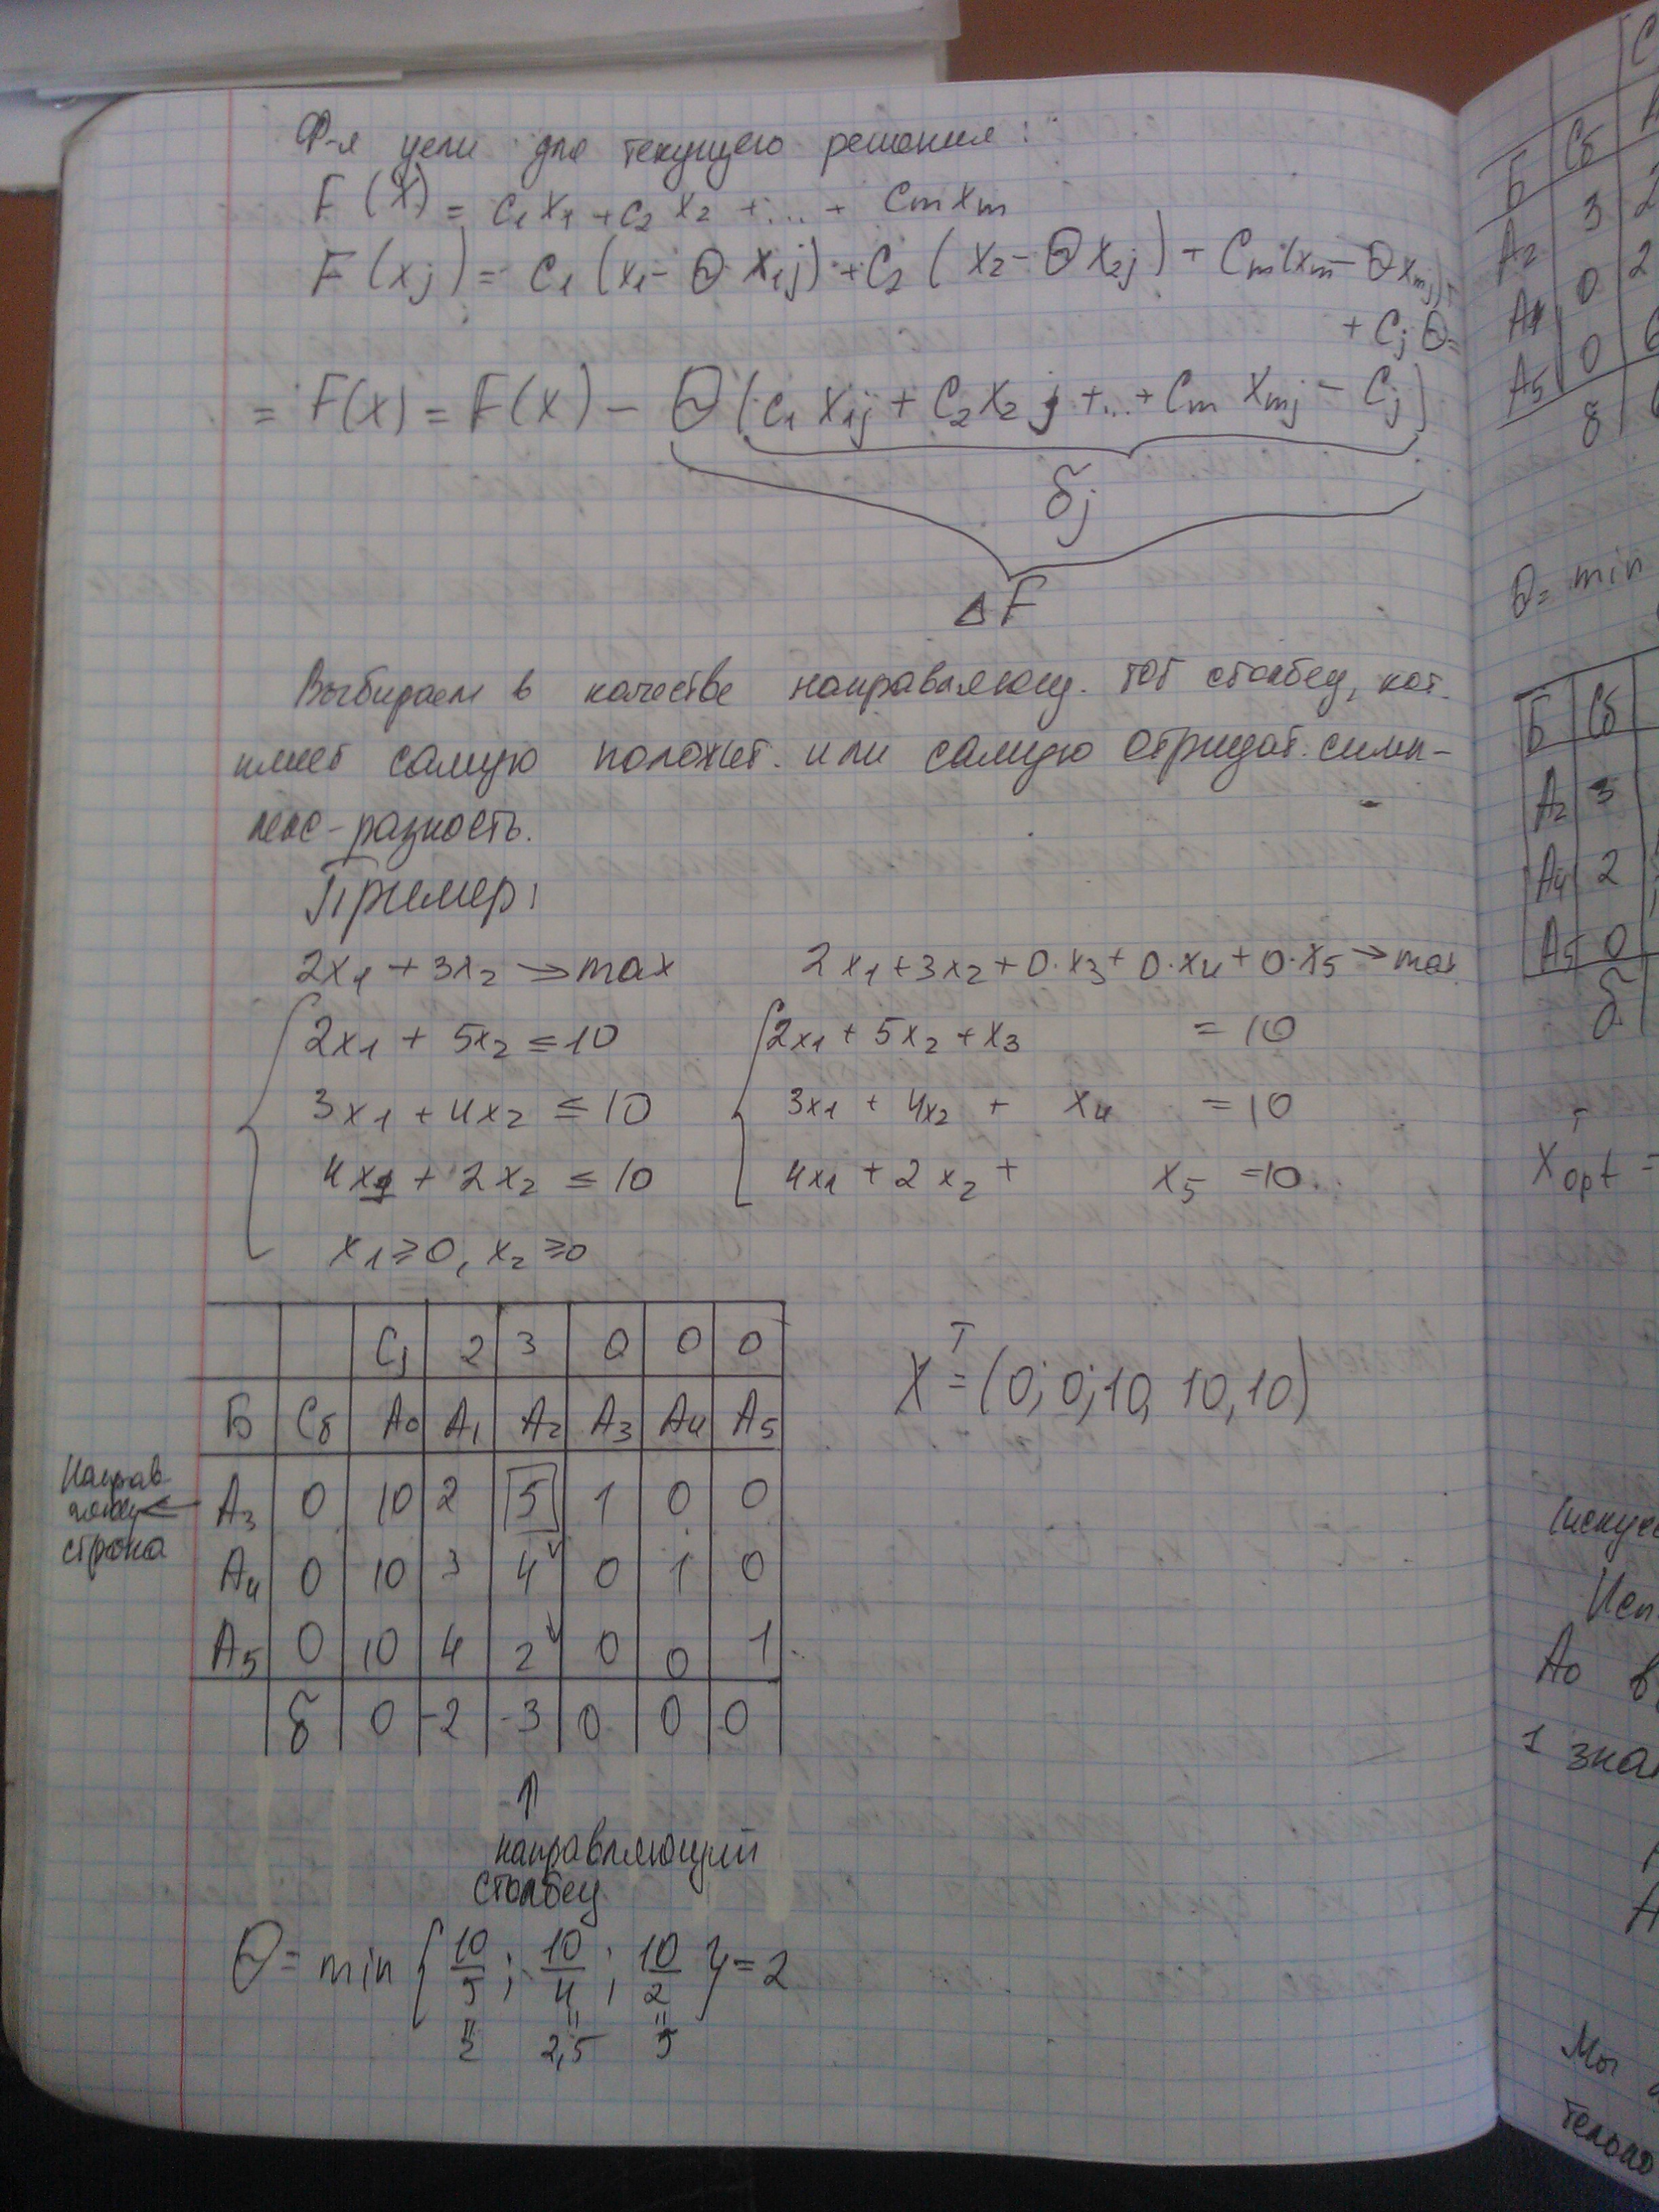 Ф-я цели для текущего решения:
F(X) = c₁x₁ + c₂x₂ + ... + cmxm
F(xj) = c₁(x₁ - Θx₁j) + c₂(x₂ - Θx₂j) + cm(xm - Θxmj) +
+ cjΘ =
= F(x) = F(x) - Θ(c₁x₁j + c₂x₂j + ... + cm xmj - cj)
δj
ΔF
Выбираем в качестве направляющ. тот столбец, кот.
имеет самую положит. или самую отридат. симп-
лекс-разность.
Пример:
2x₁ + 3x₂ → max
2x₁ + 3x₂ + 0·x₃ + 0·x₄ + 0·x₅ → max
2x₁ + 5x₂ ≤ 10
2x₁ + 5x₂ + x₃ = 10
3x₁ + 4x₂ ≤ 10
3x₁ + 4x₂ + x₄ = 10
4x₁ + 2x₂ ≤ 10
4x₁ + 2x₂ + x₅ = 10
x₁ ≥ 0, x₂ ≥ 0
Cj 2 3 0 0 0
Б Cб A₀ A₁ A₂ A₃ A₄ A₅
A₃ 0 10 2 5 1 0 0
A₄ 0 10 3 4 0 1 0
A₅ 0 10 4 2 0 0 1
δ 0 -2 -3 0 0 0
Направ-
ляющ
строка
Xᵀ = (0; 0; 10, 10, 10)
направляющий
столбец
Θ = min { 10/5 ; 10/4 ; 10/2 } = 2
2 2,5 5
C
Б Cб A
A₂ 3 2
A₄ 0 2
A₅ 0 6
δ
Θ = min
Б Cб
A₂ 3
A₄ 2
A₅ 0
δ
Xᵀopt =
Исп
A₀ в
1 зна
Мы
только